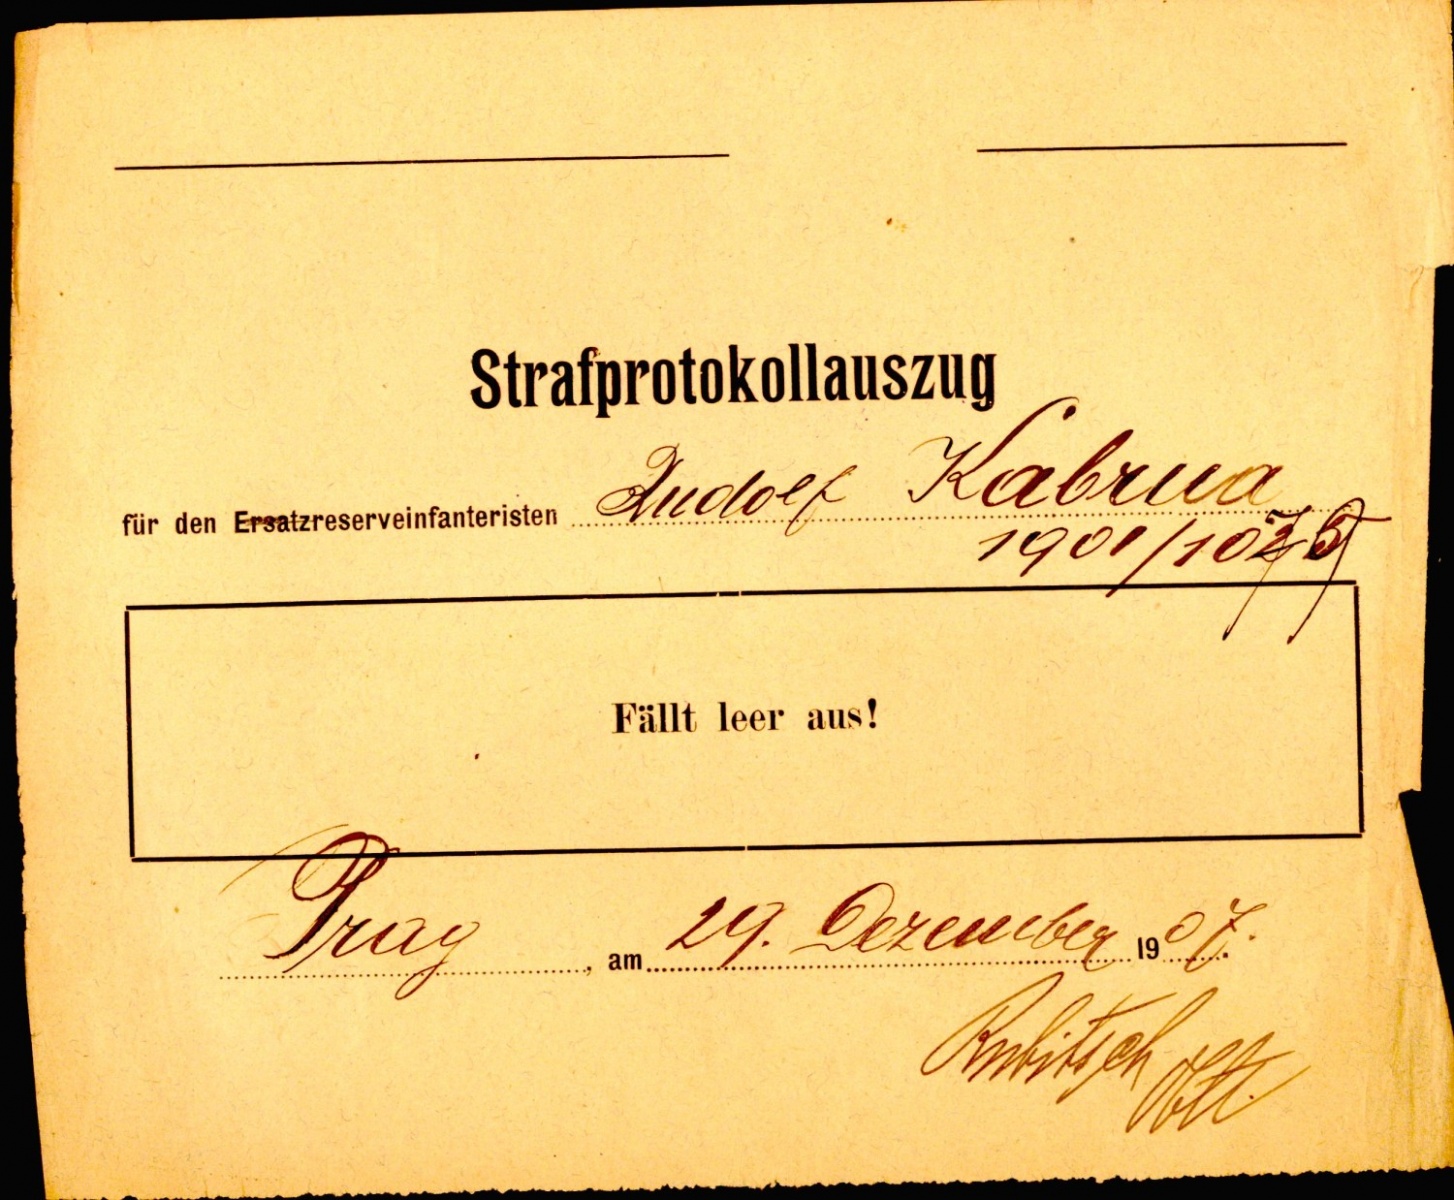 Strafprotokollauszug
für den Ersatzreserveinfanteristen Rudolf Kabrna
1901/1075
Fällt leer aus!
Prag, am 29. Dezember 1907.
Rubitsch Oblt.